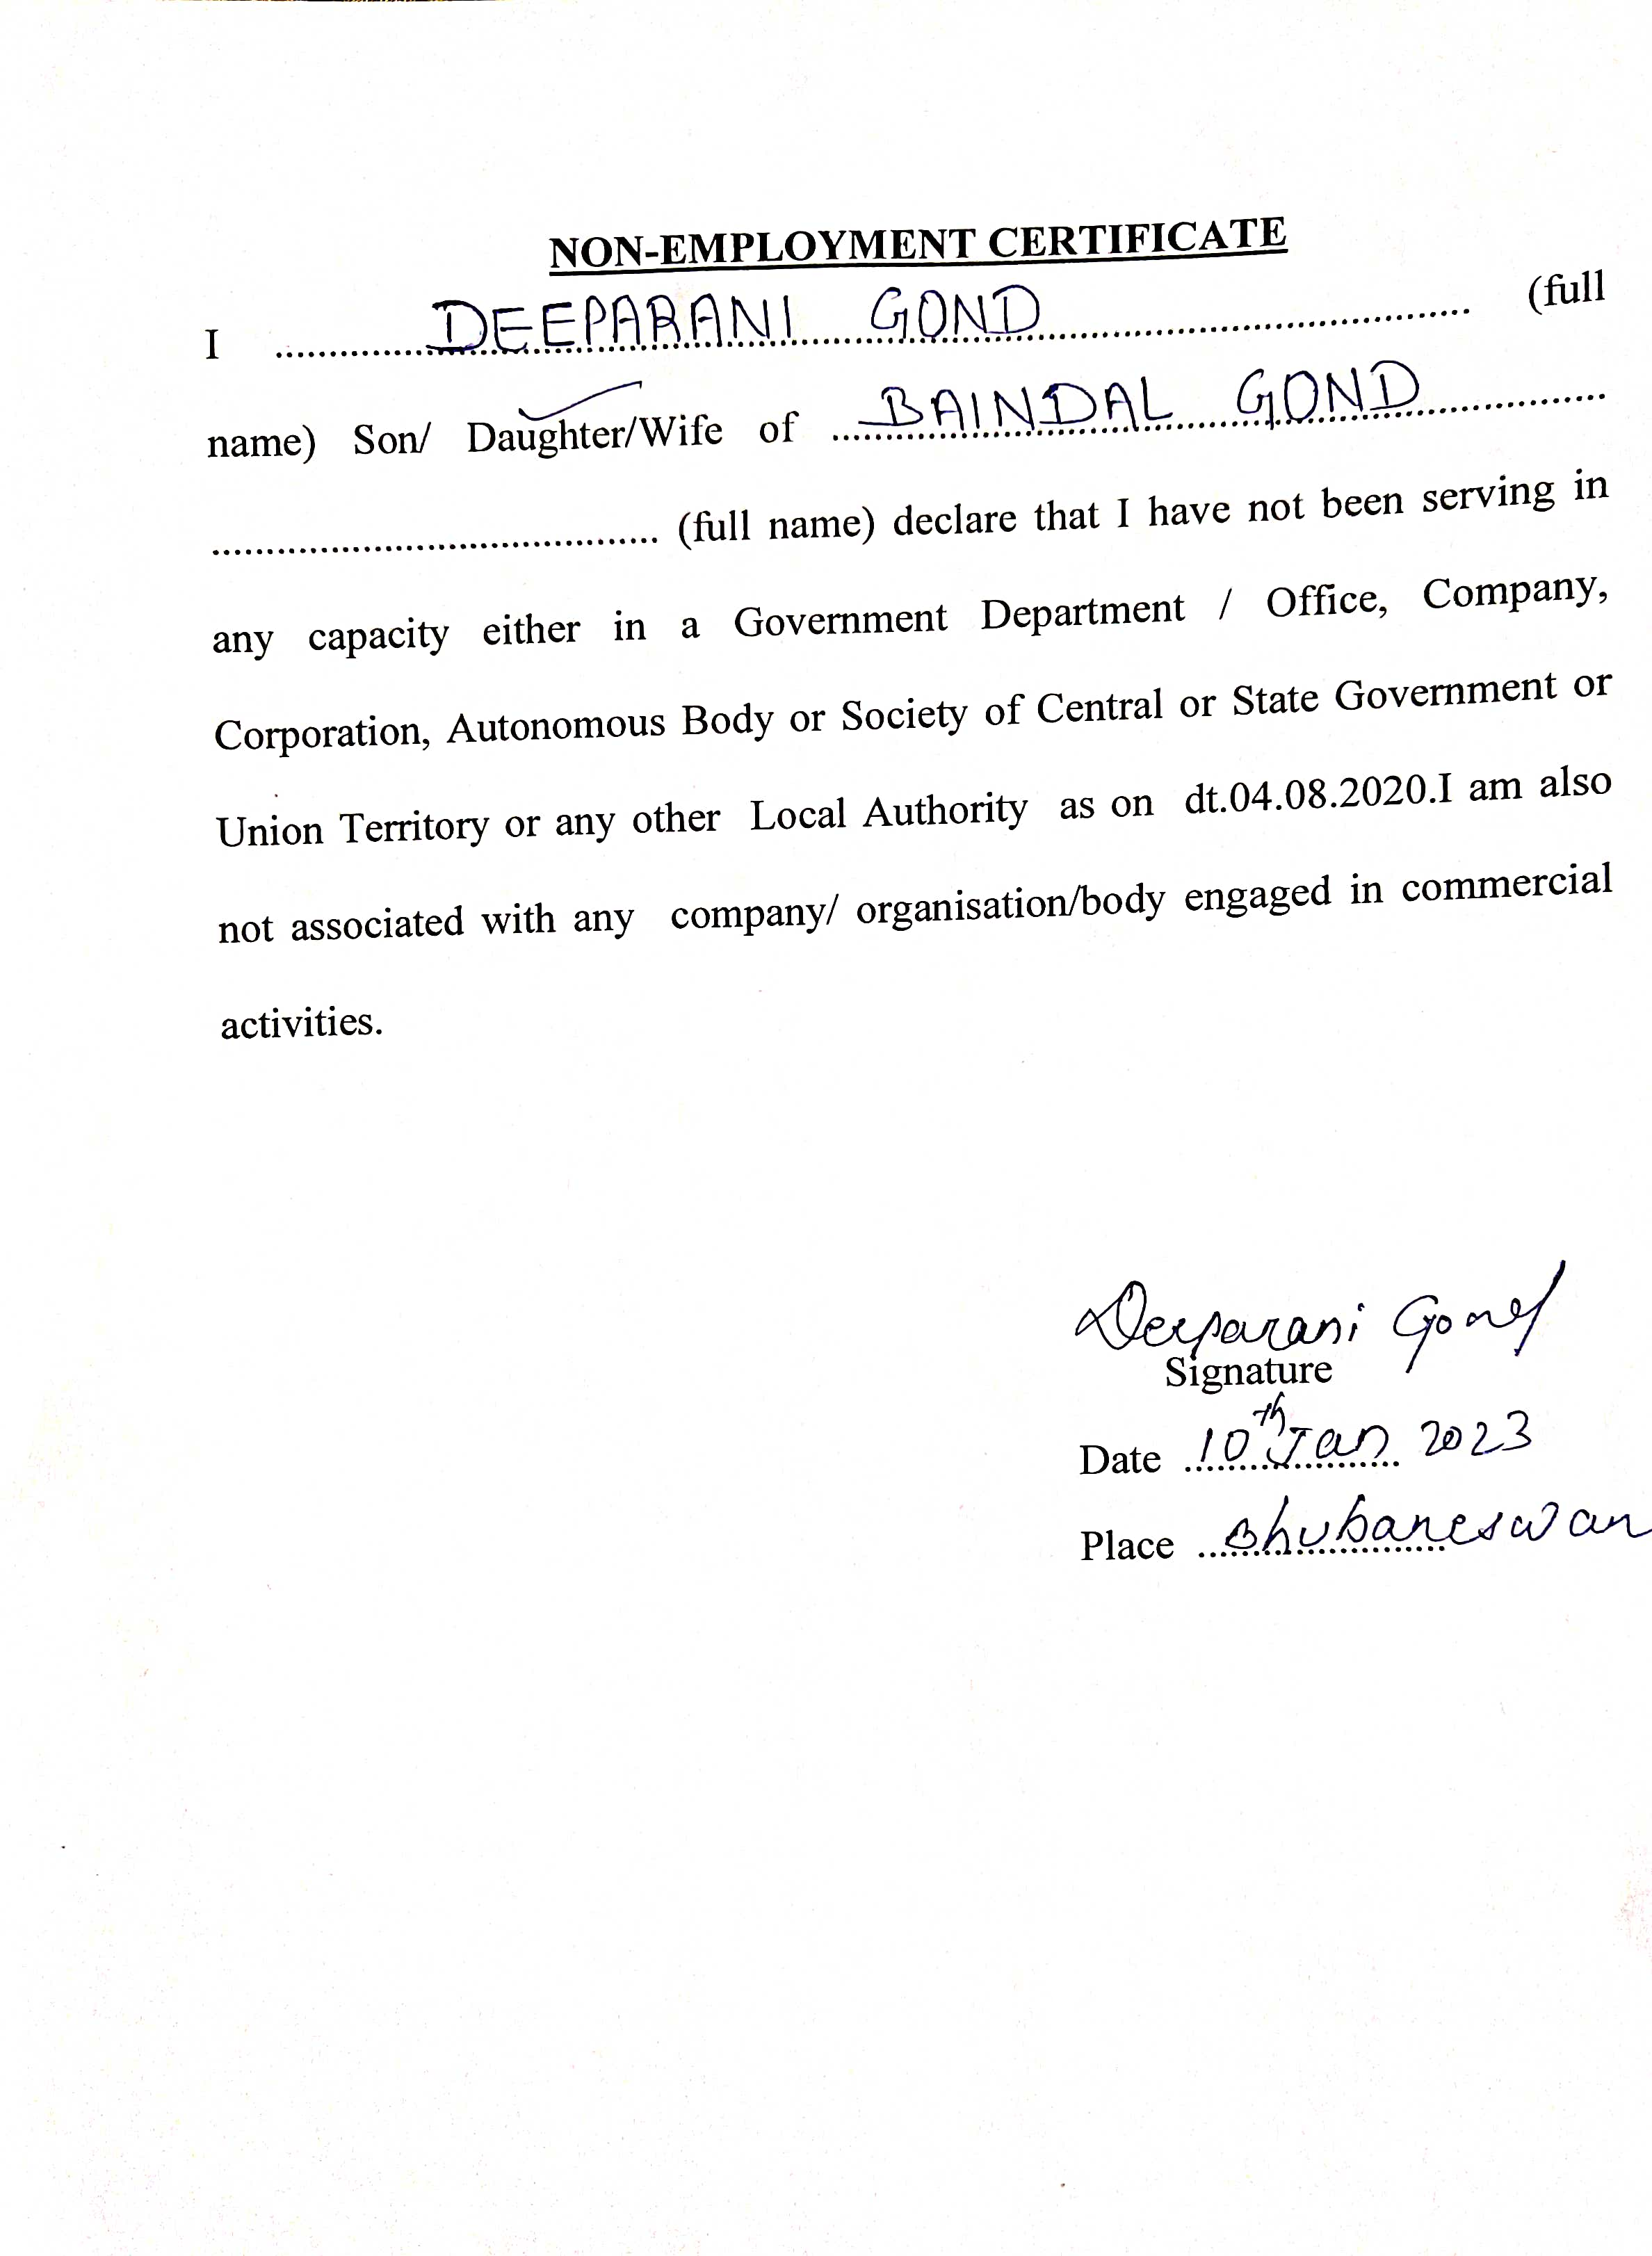 NON-EMPLOYMENT CERTIFICATE
I ................DEEPARANI GOND................ (full
name) Son/ Daughter/Wife of ....BAINDAL GOND................
........................................ (full name) declare that I have not been serving in
any capacity either in a Government Department / Office, Company,
Corporation, Autonomous Body or Society of Central or State Government or
Union Territory or any other Local Authority as on dt.04.08.2020.I am also
not associated with any company/ organisation/body engaged in commercial
activities.
Deeparani Gond
Signature
Date 10th Jan 2023
Place Bhubaneswar